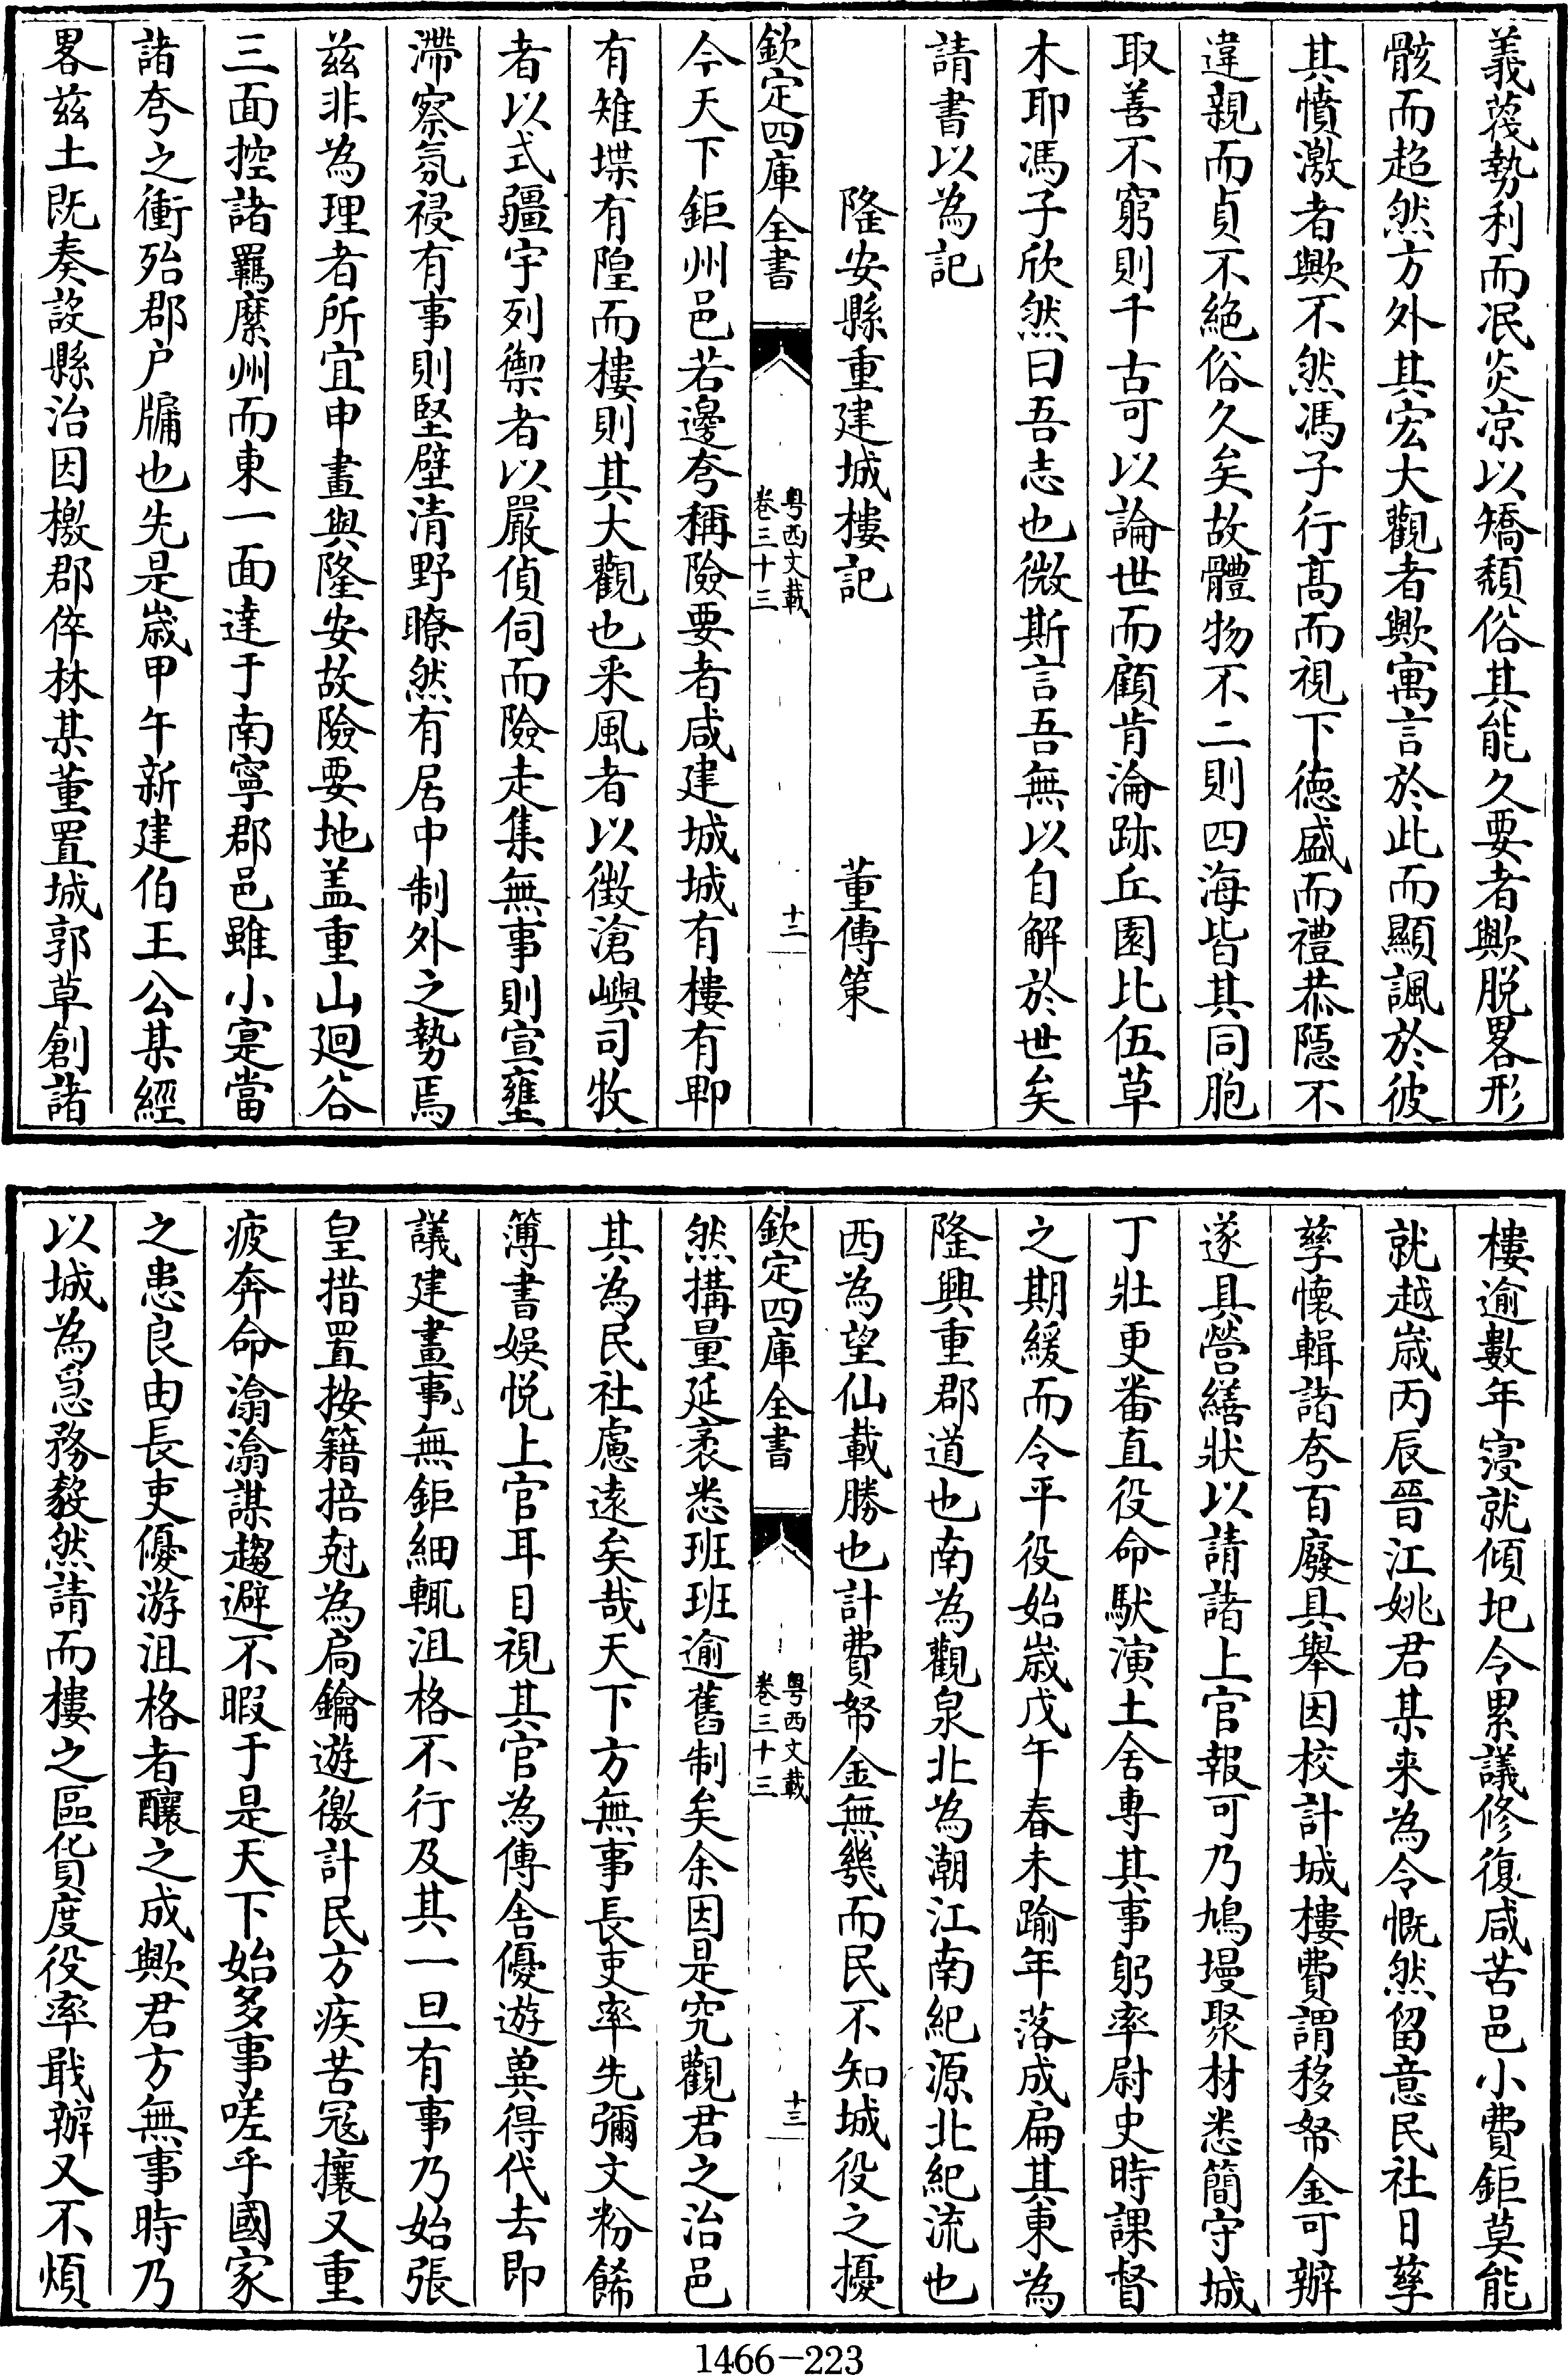 義蔑勢利而泯炎凉以矯頹俗其能久要者歟脱畧形
骸而超然方外其宏大觀者歟寓言於此而顯諷於彼
其憤激者歟不然馮子行高而視下德盛而禮恭隱不
違親而貞不絶俗久矣故體物不二則四海皆其同胞
取善不窮則千古可以論世而顧肯淪跡丘園比伍草
木耶馮子欣然曰吾志也微斯言吾無以自解於世矣
請書以為記
隆安縣重建城樓記　董傳策
欽定四庫全書
粤西文載
卷三十三
十二
今天下鉅州邑若邊夸稱險要者咸建城城有樓有郫
有雉堞有隍而樓則其大觀也采風者以徵滄嶼司牧
者以式疆宇列禦者以嚴偵伺而險走集無事則宣壅
滯察氛祲有事則堅壁清野瞭然有居中制外之勢焉
兹非為理者所宜申畫與隆安故險要地盖重山廻谷
三面控諸羈縻州而東一面達于南寧郡邑雖小寔當
諸夸之衝殆郡户牖也先是嵗甲午新建伯王公某經
畧兹土既奏設縣治因檄郡倅林某董置城郭草創諸
樓逾數年寖就傾圮令累議修復咸苦邑小費鉅莫能
就越嵗丙辰晉江姚君某来為令慨然留意民社日孳
孳懷輯諸夸百廢具舉因校計城樓費謂移帑金可辦
遂具營繕狀以請諸上官報可乃鳩墁聚材悉簡守城
丁壯更番直役命馱演土舍專其事躬率尉史時課督
之期緩而令平役始嵗戊午春未踰年落成扁其東為
隆興重郡道也南為觀泉北為潮江南紀源北紀流也
西為望仙載勝也計費帑金無幾而民不知城役之擾
欽定四庫全書
粤西文載
卷三十三
十三
然搆量延袤悉班班逾舊制矣余因是究觀君之治邑
其為民社慮遠矣哉天下方無事長吏率先彌文粉餙
簿書娛悦上官耳目視其官為傳舍優遊兾得代去即
議建畫事無鉅細輒沮格不行及其一旦有事乃始張
皇措置按籍掊尅為扃鑰遊徼計民方疾苦冦攘又重
疲奔命滃滃謀趨避不暇于是天下始多事嗟乎國家
之患良由長吏優游沮格者釀之成歟君方無事時乃
以城為急務毅然請而樓之區貨度役率戢辦又不煩
1466-223